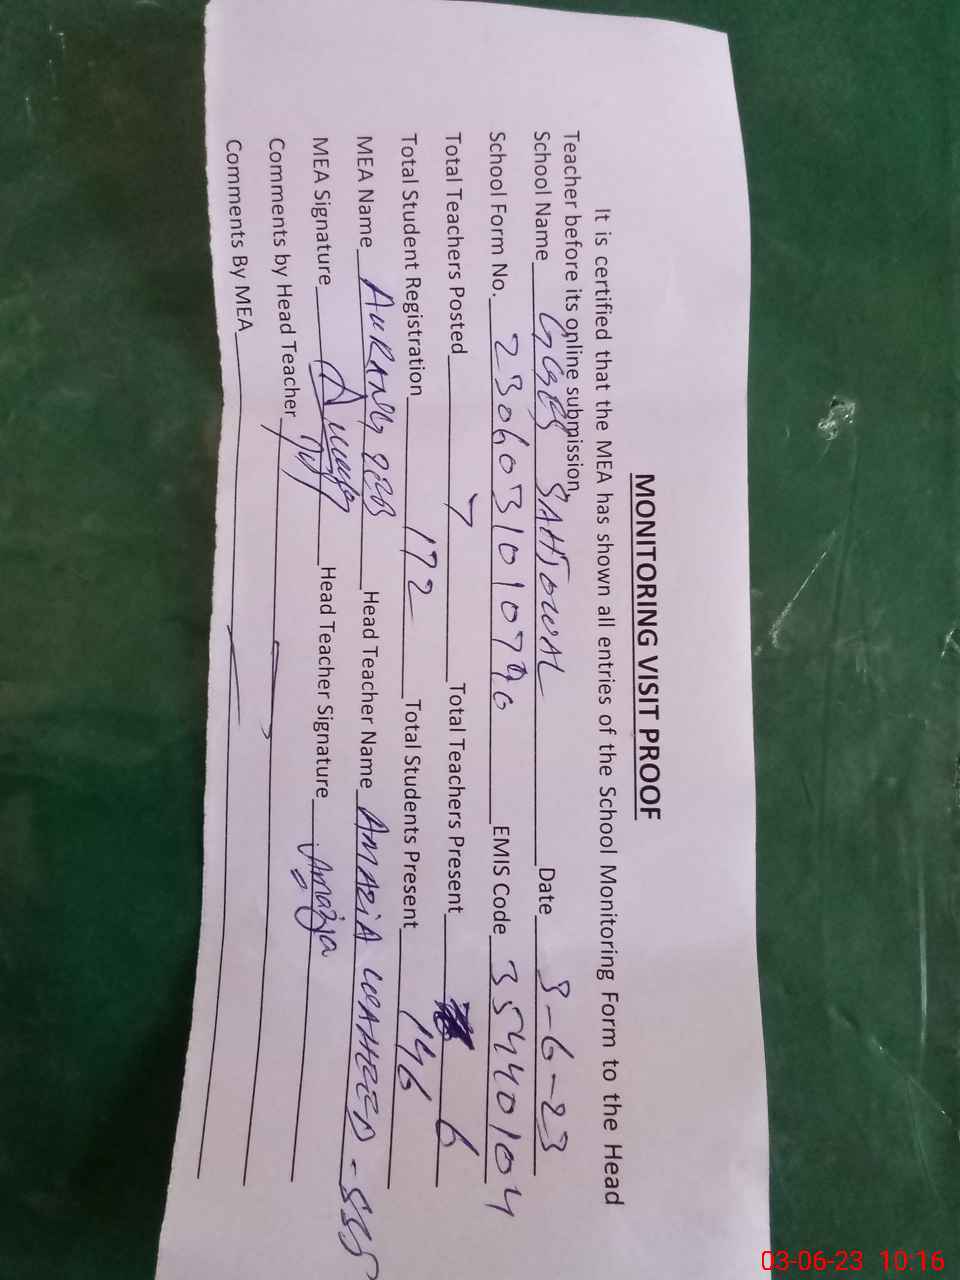 MONITORING VISIT PROOF
It is certified that the MEA has shown all entries of the School Monitoring Form to the Head
Teacher before its online submission.
School Name GGES SAHIOWAL Date 3-6-23
School Form No. 2306031010796 EMIS Code 35440104
Total Teachers Posted 7 Total Teachers Present 6
Total Student Registration 172 Total Students Present 146
MEA Name AURANG ZEB Head Teacher Name AMAZIA WAHEED - SSS
MEA Signature Head Teacher Signature Amazia
Comments by Head Teacher
Comments By MEA
03-06-23 10:16